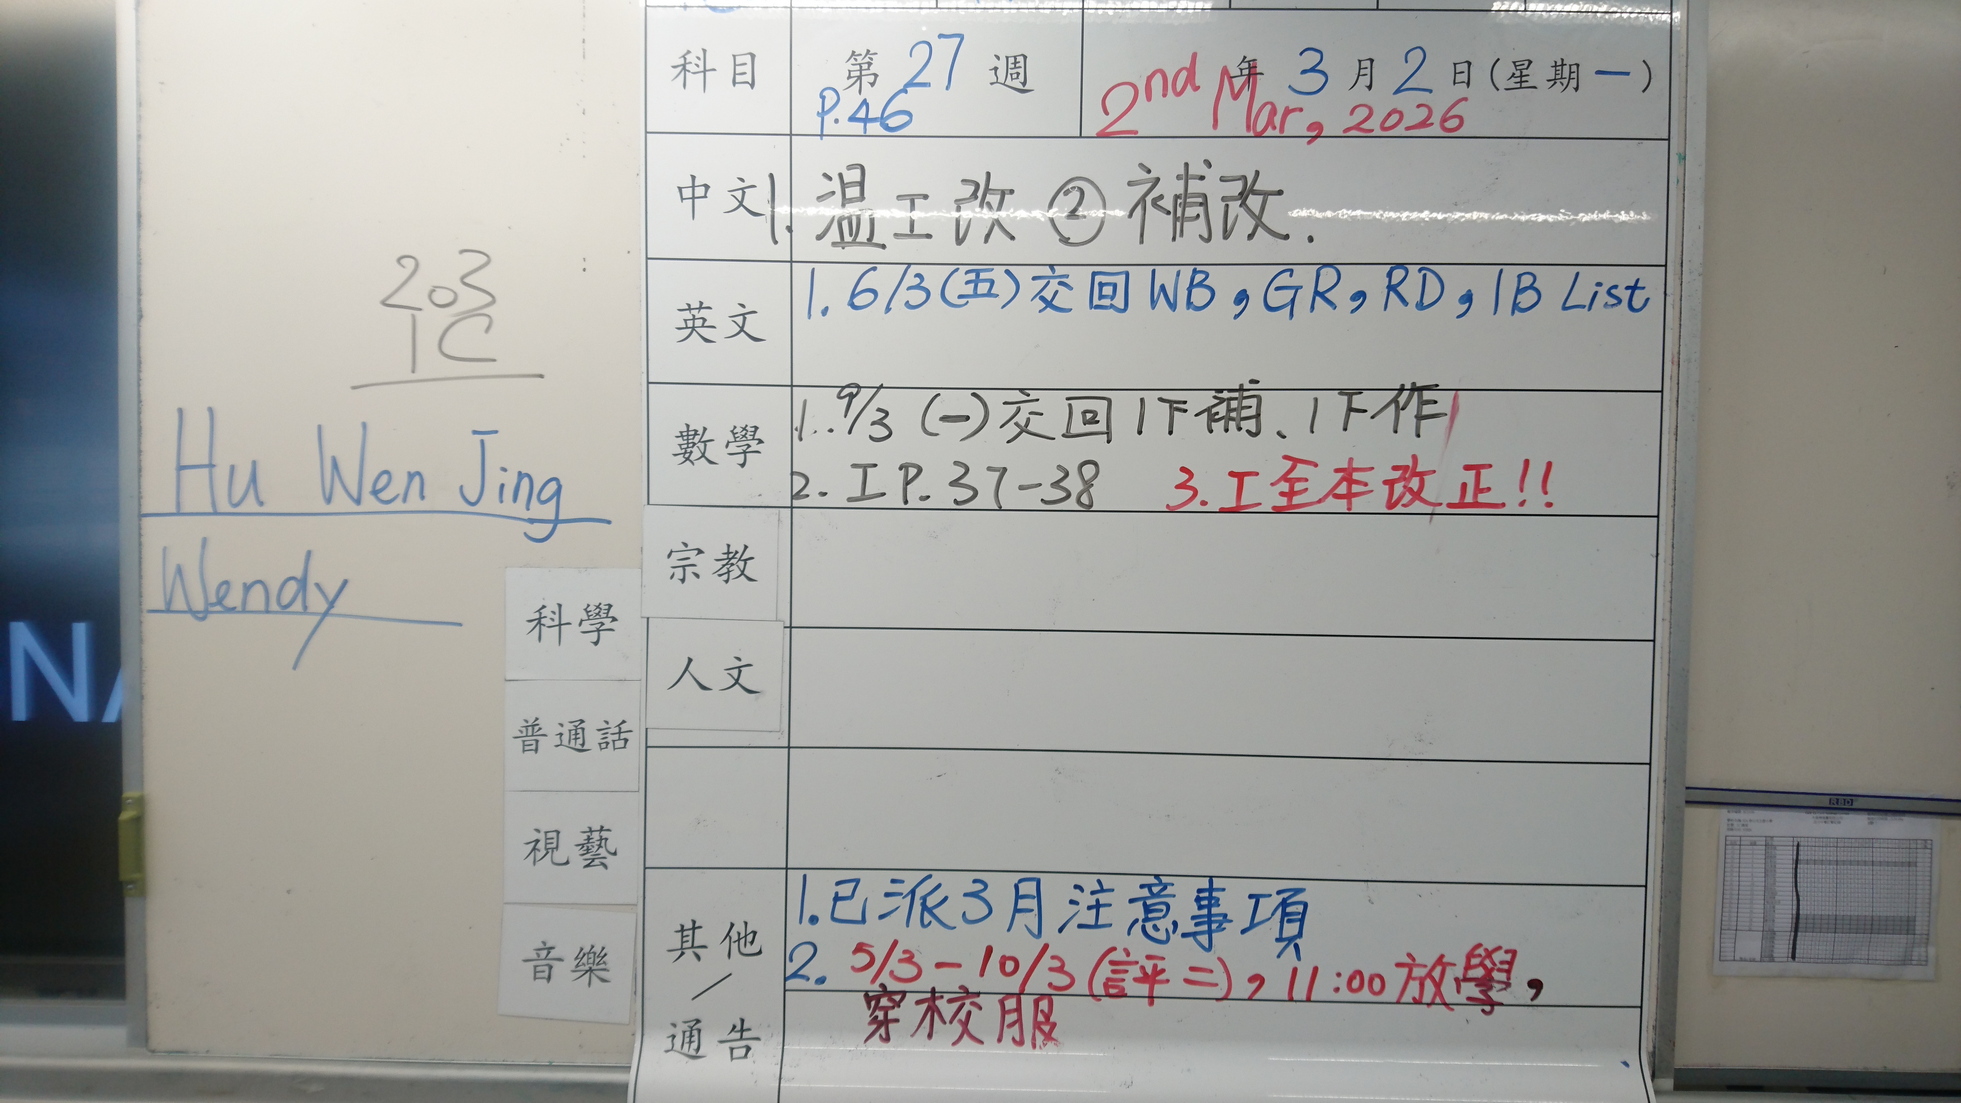 203
1C
Hu Wen Jing
Wendy
科學
普通話
視藝
音樂
科目 第27週 年3月2日(星期一)
P.46 2nd Mar, 2026
中文 1. 温工改 ② 補改.
英文 1. 6/3(五)交回WB,GR,RD,1B List
數學 1. 9/3 (一)交回1下補、1下作
2. 工P.37-38 3.工至本改正!!
宗教
人文
其他/通告
1.已派3月注意事項
2. 5/3-10/3(評二),11:00放學,
穿校服
RBD